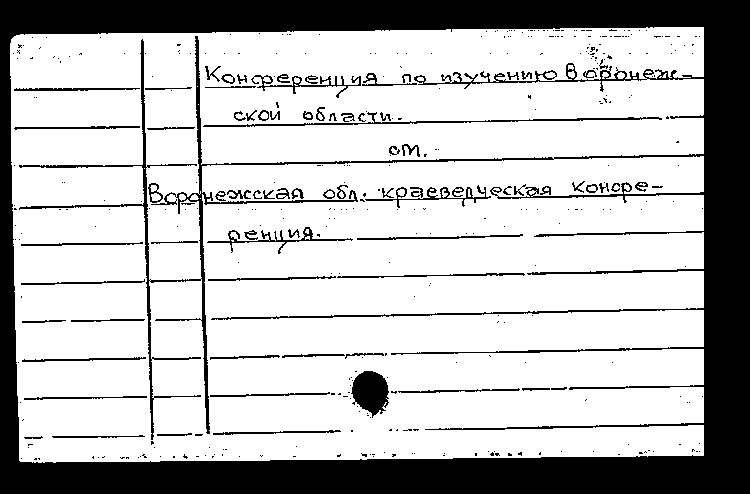 Конференция по изучению Воронеж-
ской области.
см.
Воронежская обл. краеведческая конфе-
ренция.